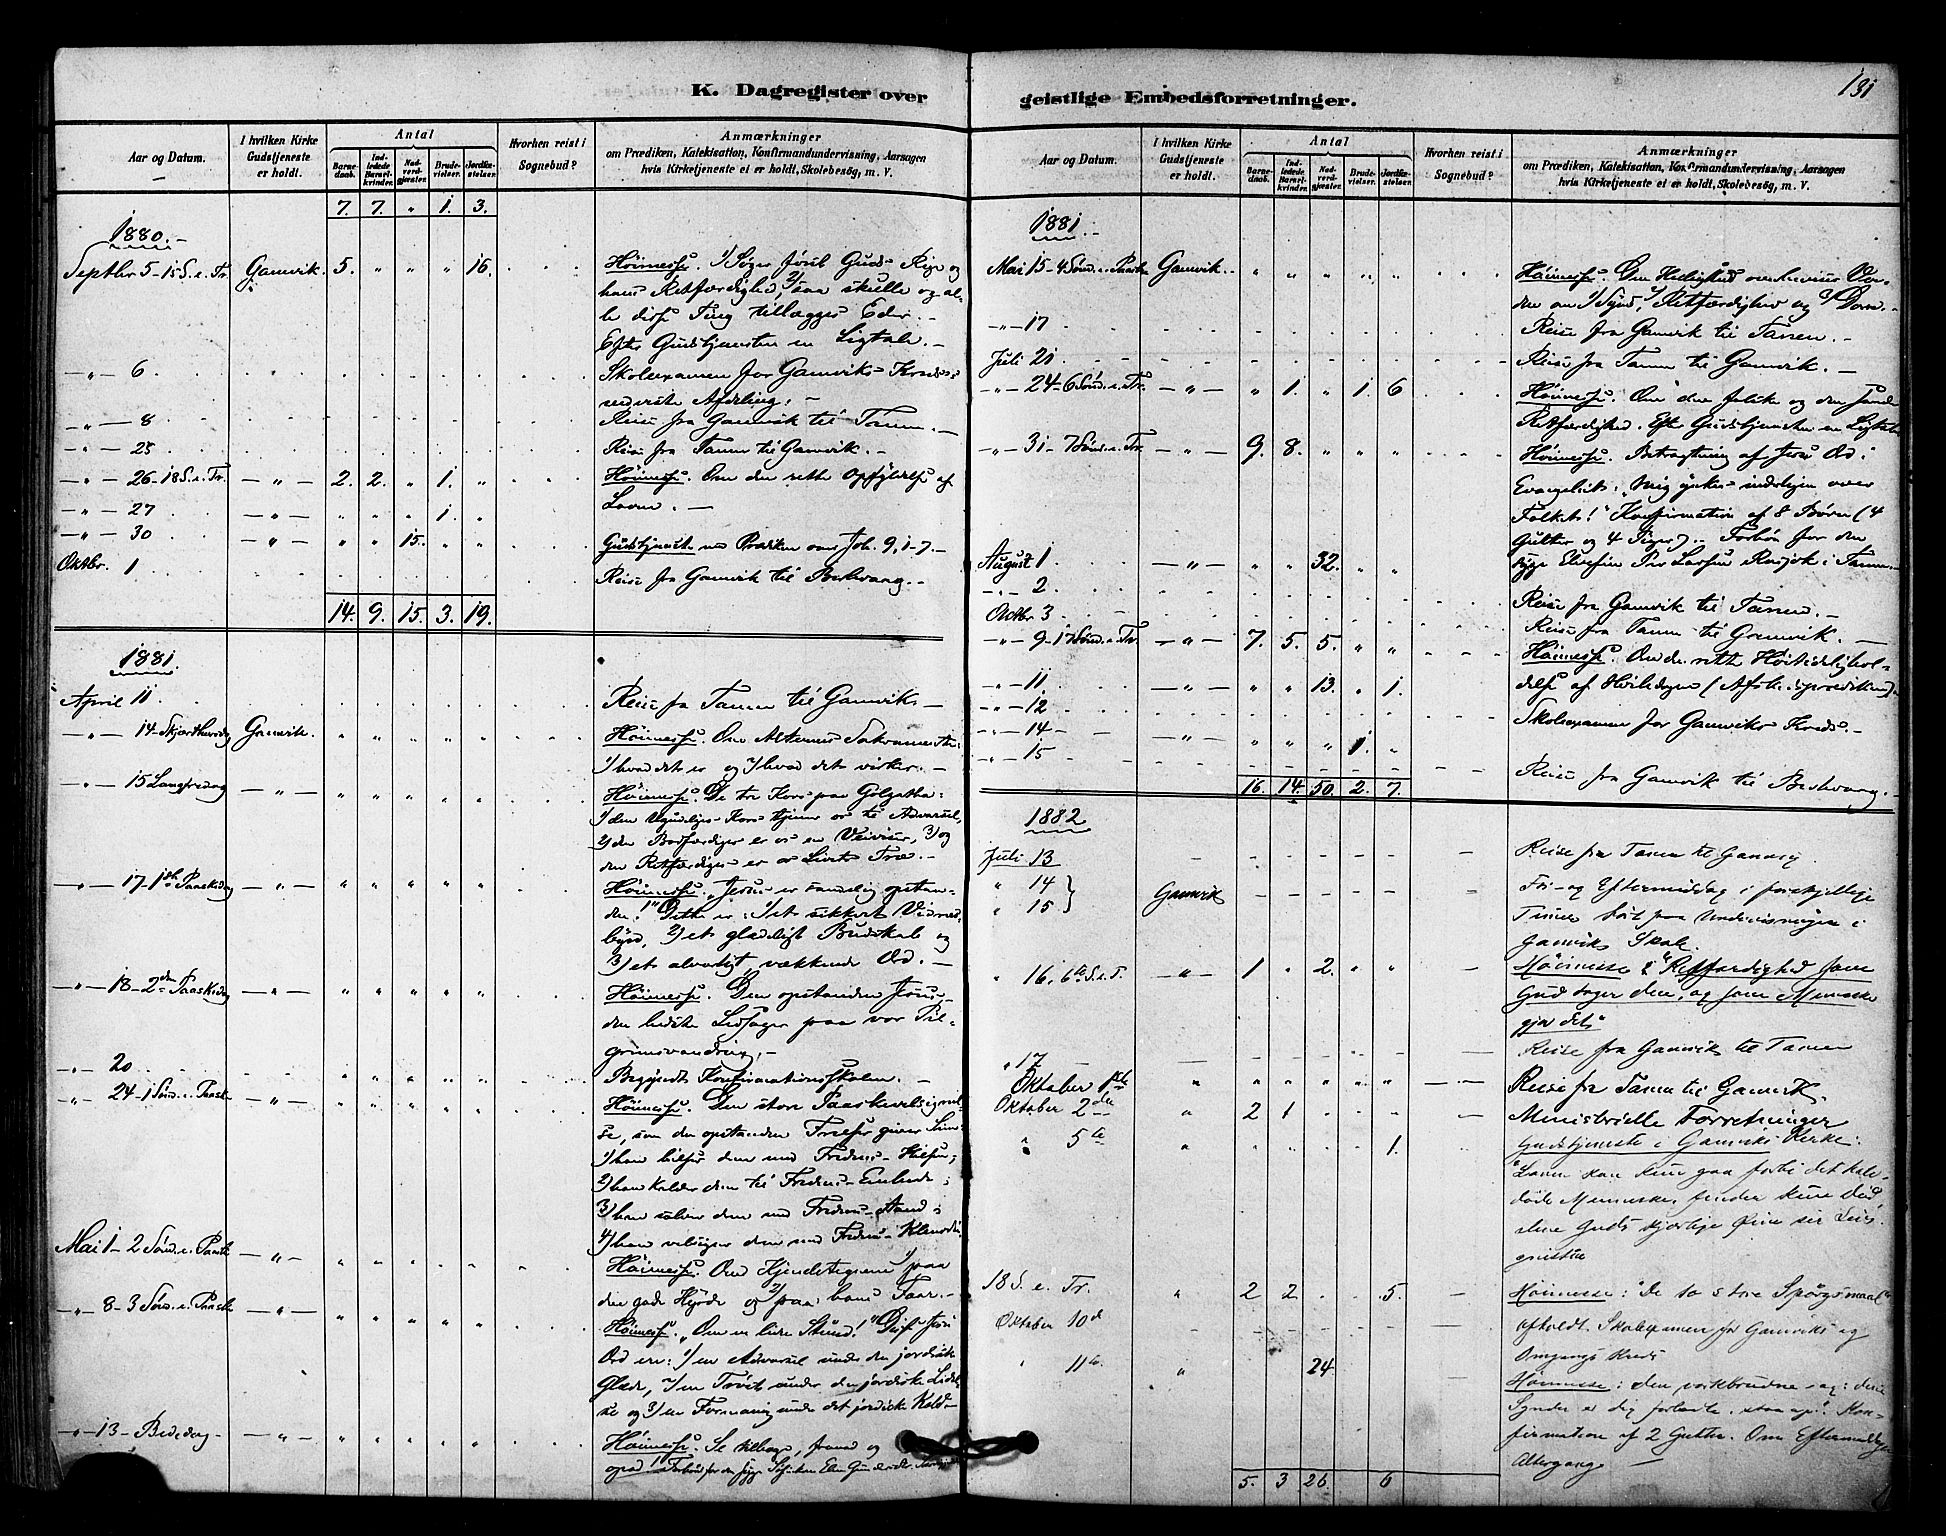 K. Dagregister over geistlige Embedsforretninger. 131
Aar og Datum. I hvilken Kirke Gudstjeneste er holdt. Antal Hvorhen reist i Sognebud? Anmærkninger
Barne-daab. Ind-ledede Barsel-kvinder. Nad-verd-gjæster. Brude-vielser. Jordfæ-stelser.
om Prædiken, Katekisation, Konfirmandundervisning, Aarsagen
hvis Kirketjeneste ei er holdt, Skolebesög, m. V.
7. 7. " 1. 3.
1880.
Septbr 5 - 15 S. e. Tr. Gamvik. 5. " " " 16. Höimesse. 1) Söger först Guds Rige og
hans Retfærdighed, 2) saa skulle og al-
le disse Ting tillægges Eder. -
Efter Gudstjenesten en Ligtale. -
- " - 6 Skoleexamen for Gamviks Kreds
nederste Afdeling. -
- " - 8 Reise fra Gamvik til Tanen. -
- " - 25 Reise fra Tanen til Gamvik. -
- " - 26. 18 S. e. Tr. - " - 2. 2. " 1. " Höimesse. Om den rette Opfyldelse af
Loven. -
- " - 27 - " - " " " 1. "
- " - 30 - " - " " 15. " " Gudstjeneste med Prædiken over Joh. 9, 1-7. -
Oktbr. 1 Reise fra Gamvik til Berlevaag. -
14. 9. 15. 3. 19.
1881.
April 11 Reise fra Tanen til Gamvik -
- " - 14 - Skjærthorsdag Gamvik. " " " " " Höimesse. Om Alterens Sakramente:
1) hvad det er og 2) hvad det virker. -
- " - 15 Langfredag - " - " " " " " Höimesse. De tre Kors paa Golgatha:
1) den Ugudeliges Kors tjener os til Advarsel,
2) den Bodfærdiges er os en Veiviser, 3) og
den Retfærdiges er os Livets Træ. -
- " - 17 - 1ste Paaskedag - " - " " " " " Höimesse. "Jesus er sandelig opstan-
den!" Dette er: 1) et sikkert Vidnes-
byrd, 2) et glædeligt Budskab og
3) et alvorligt, vækkende Ord. -
- " - 18 - 2den Paaskedag - " - " " " " " Höimesse. Den opstandne Jesus
den bedste Ledsager paa vor Pil-
grimsvandring. -
- " - 20 " " " " " Begyndt Konfirmationsskolen. -
- " - 24 - 1 Sönd. e. Paaske - " - " " " " " Höimesse. Den store Paaskevelsignel-
se, som den opstandne Frelser giver Sine:
1) han hilser dem med Fredens Hilsen;
2) han kalder dem til Fredens Embede;
3) han salver dem med Fredens Aand;
4) han velsigner dem med Fredens Klenodie.
Mai 1 - 2 Sönd. e. Paaske - " - " " " " " Höimesse. Om Kjendetegnene 1) paa
den gode Hyrde og 2) paa hans Faar. -
- " - 8 - 3 Sönd. e. Paaske - " - " " " " " Höimesse. "Om en liden Stund!" Disse Jesu
Ord ere: 1) en Advarsel under den jordiske
Glæde, 2) en Tröst under den jordiske Lidel-
se og 3) en Formaning under det jordiske Kald. -
- " - 13 - Bededag - " - " " " " " Höimesse. Se tilbage, fremad og
opad!
Aar og Datum. I hvilken Kirke Gudstjeneste er holdt. Antal Hvorhen reist i Sognebud? Anmærkninger
Barne-daab. Ind-ledede Barsel-kvinder. Nad-verd-gjæster. Brude-vielser. Jordfæ-stelser.
om Prædiken, Katekisation, Konfirmandundervisning, Aarsagen
hvis Kirketjeneste ei er holdt, Skolebesög, m. V.
1881.
Mai 15 - 4 Sönd. e. Paaske Gamvik. " " " " " Höimesse. Den Helligaand overbeviser Ver-
den om 1) Synd, 2) Retfærdighed og 3) Dom. -
- " - 17 Reise fra Gamvik til Tanen. -
Juli 21 Reise fra Tanen til Gamvik. -
- " - 24 - 6 Sönd. e. Tr. - " - " 1. " 1. 6 Höimesse. Om den falske og den sande
Retfærdighed. Efter Gudstjenesten en Ligtale
- " - 31 - 7 Sönd. e. Tr. - " - 9. 8. " " " Höimesse. Betragtning af Jesu Ord i
Evangeliet: "Mig ynkes inderligen over
Folket!" Konfirmation af 8 Börn (4
Gutter og 4 Piger). Forbön for den
syge Per Larsen i Tanen
August 1 - " - " " 32. " "
- " - 2 Reise fra Gamvik til Tanen. -
Octbr 3 Reise fra Tanen til Gamvik. -
- " - 9 - 17 Sönd. e. Tr. - " - 7. 5. 5. " " Höimesse. Om den rette Höitideligho-
delse af Hviledagen (Afskedsprædiken).
- " - 11 - " - " " 13. " 1.
- " - 12 Skoleexamen for Gamviks Kreds. -
- " - 14 - " - " " " 1. "
- " - 15 Reise fra Gamvik til Berlevaag. -
16. 14. 50. 2. 7.
1882
Juli 13 Reise fra Tanen til Gamvig
" 14 } Gamvik For- og Eftermiddag i forskjellige
" 15 } Timer hört paa Undervisningen i
Gamviks Skole.
" 16. 6te S. e. T. - " - 1 " 2. " " Höimesse: "Retfærdighed som
Gud tager den, og som Menneske
gjör det"
" 17 Reise fra Gamvik til Tanen
Oktober 1ste " Reise fra Tanen til Gamvik.
Oktober 2den " 2 1 Ministerielle Forretninger
" 5te " 1. Gudstjeneste i Gamviks Kirke:
"Loven kan kun gaa forbi det halv-
döde Menneske, finder kun Död
alene Guds kjærlige Öine ser Livs-
gnisten
18 S. e. Tr. " 2 2 5. Höimesse: "De to store Spörgsmaal"
Oktober 10de Afholdt Skoleexamen for Gamviks og
Omgangs Kreds
" 11te " 24 Höimesse: den værkbrudne: "dine
Synder er dig forladte, staa op." Kon-
firmation af 2 Gutter. Om Eftermiddagen
Altergang. -
5. 3 26. 6